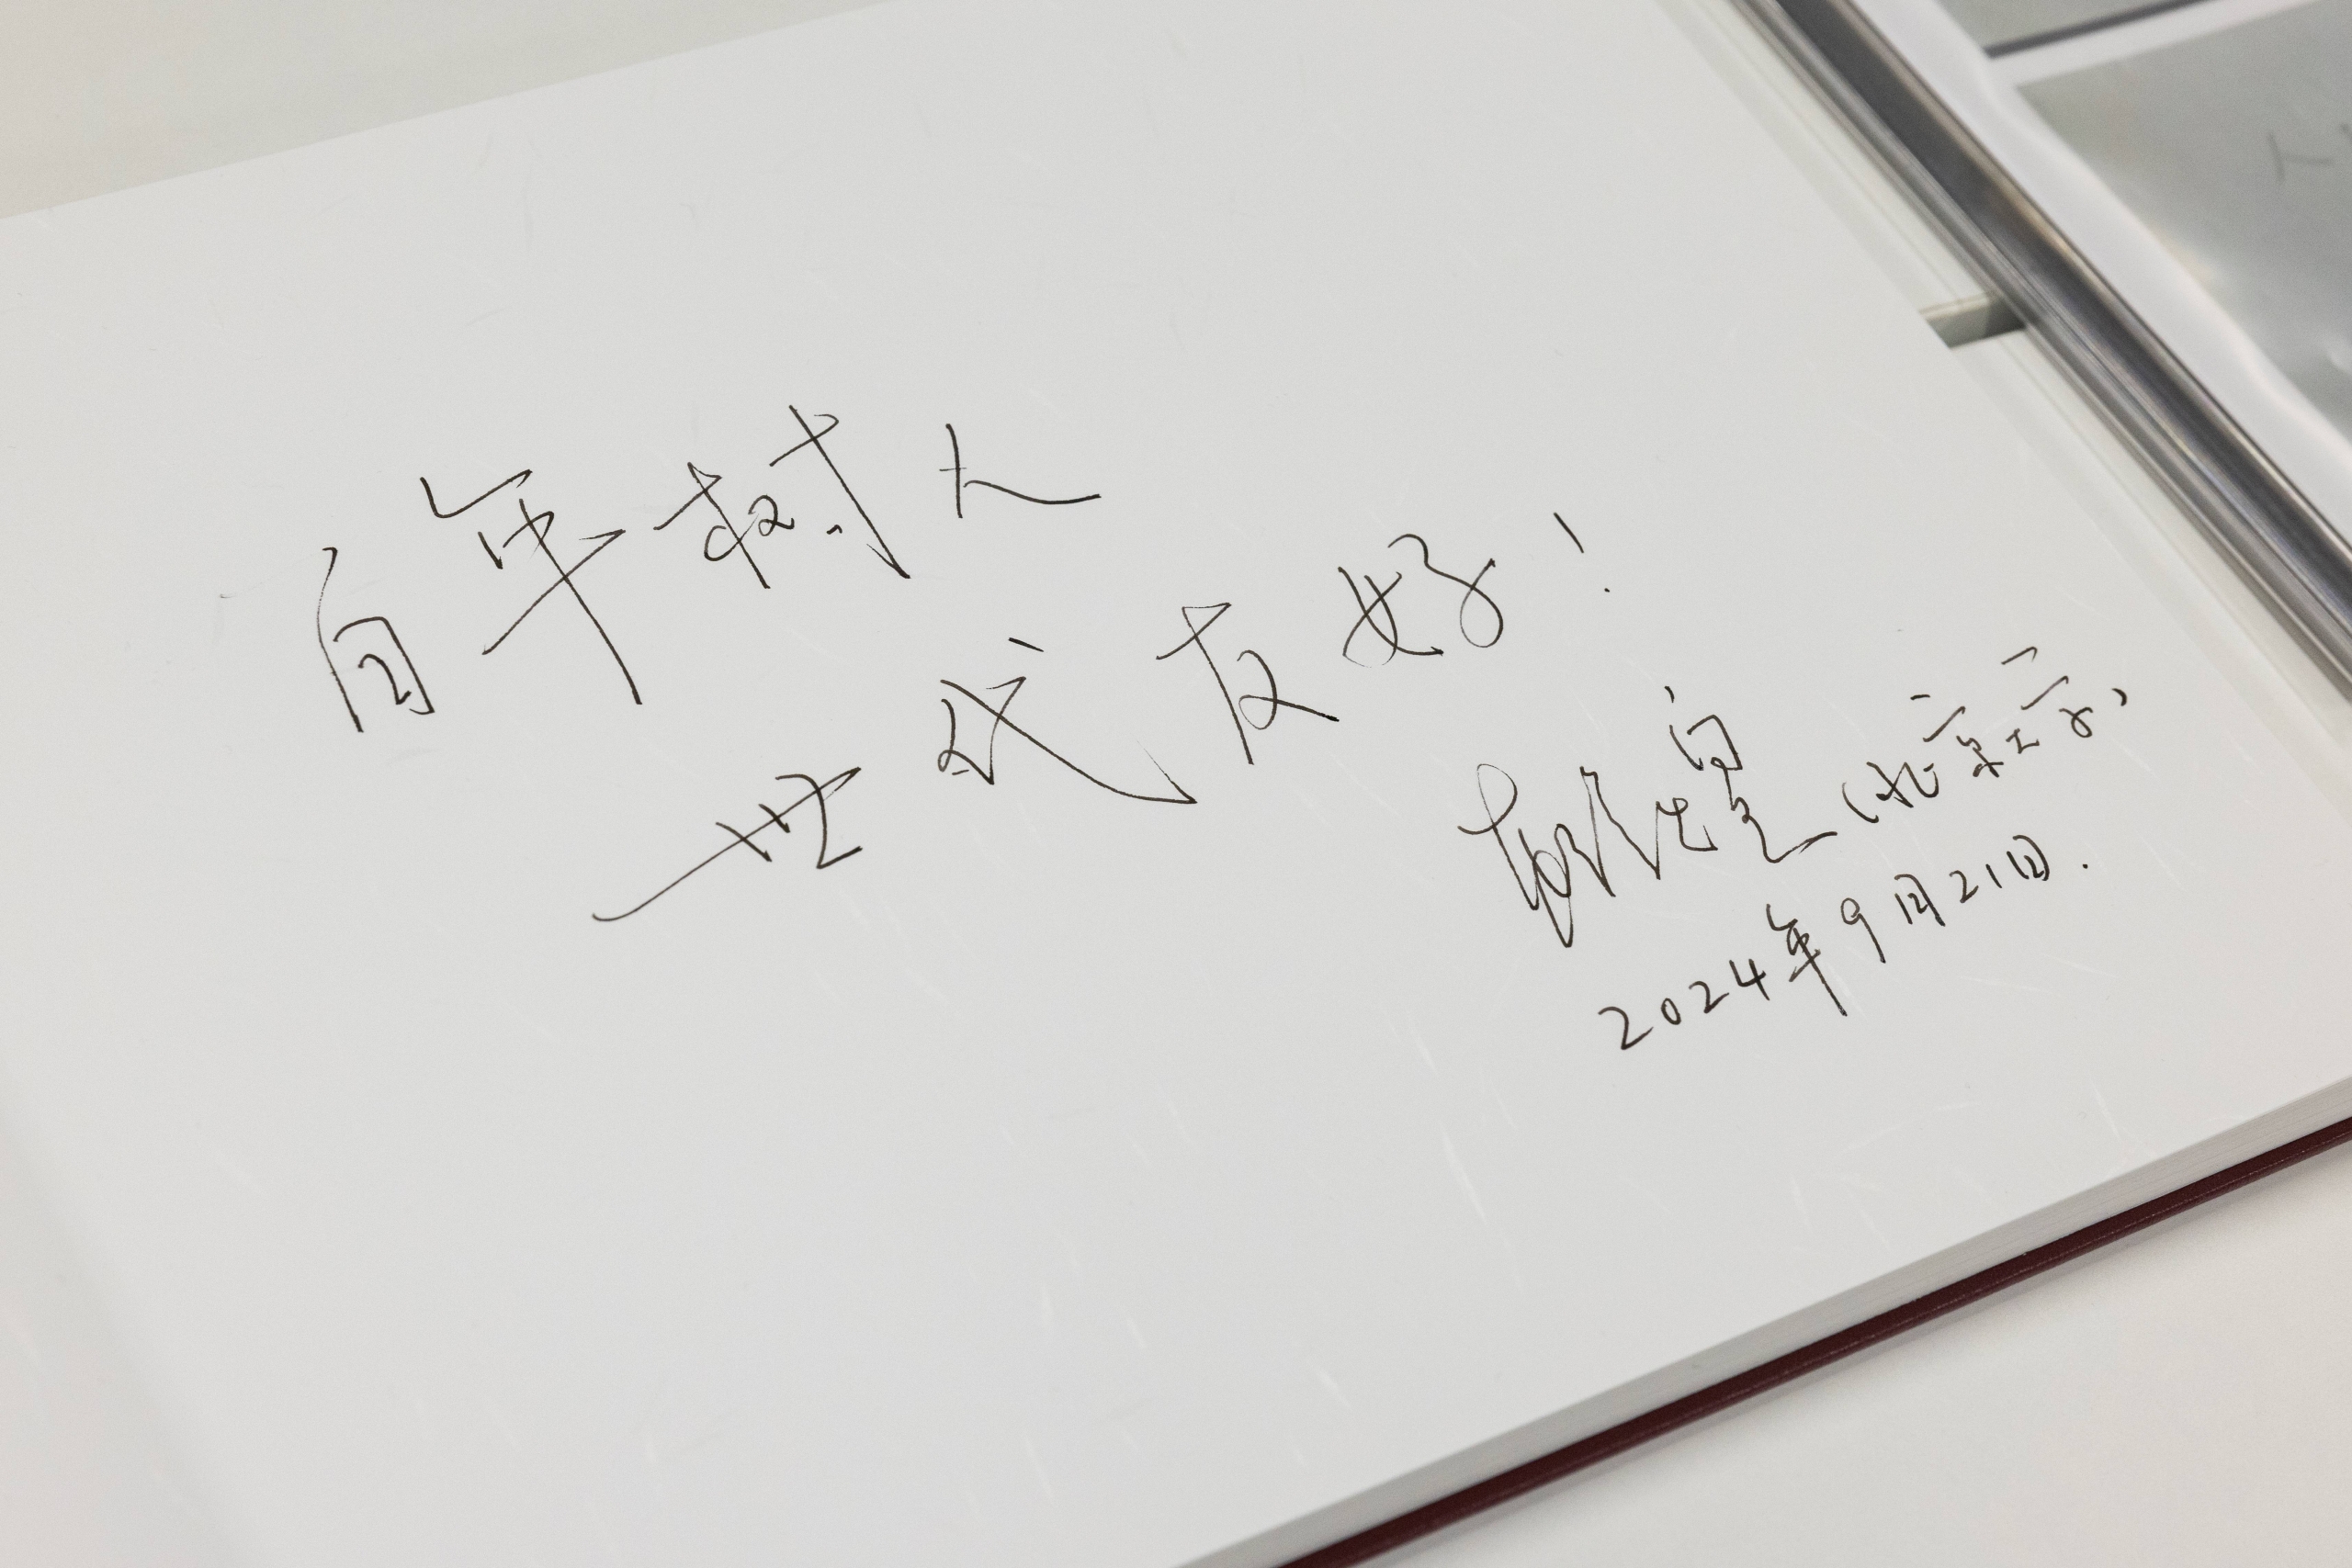 百年树人
世代友好！
(北京
2024年9月21日.